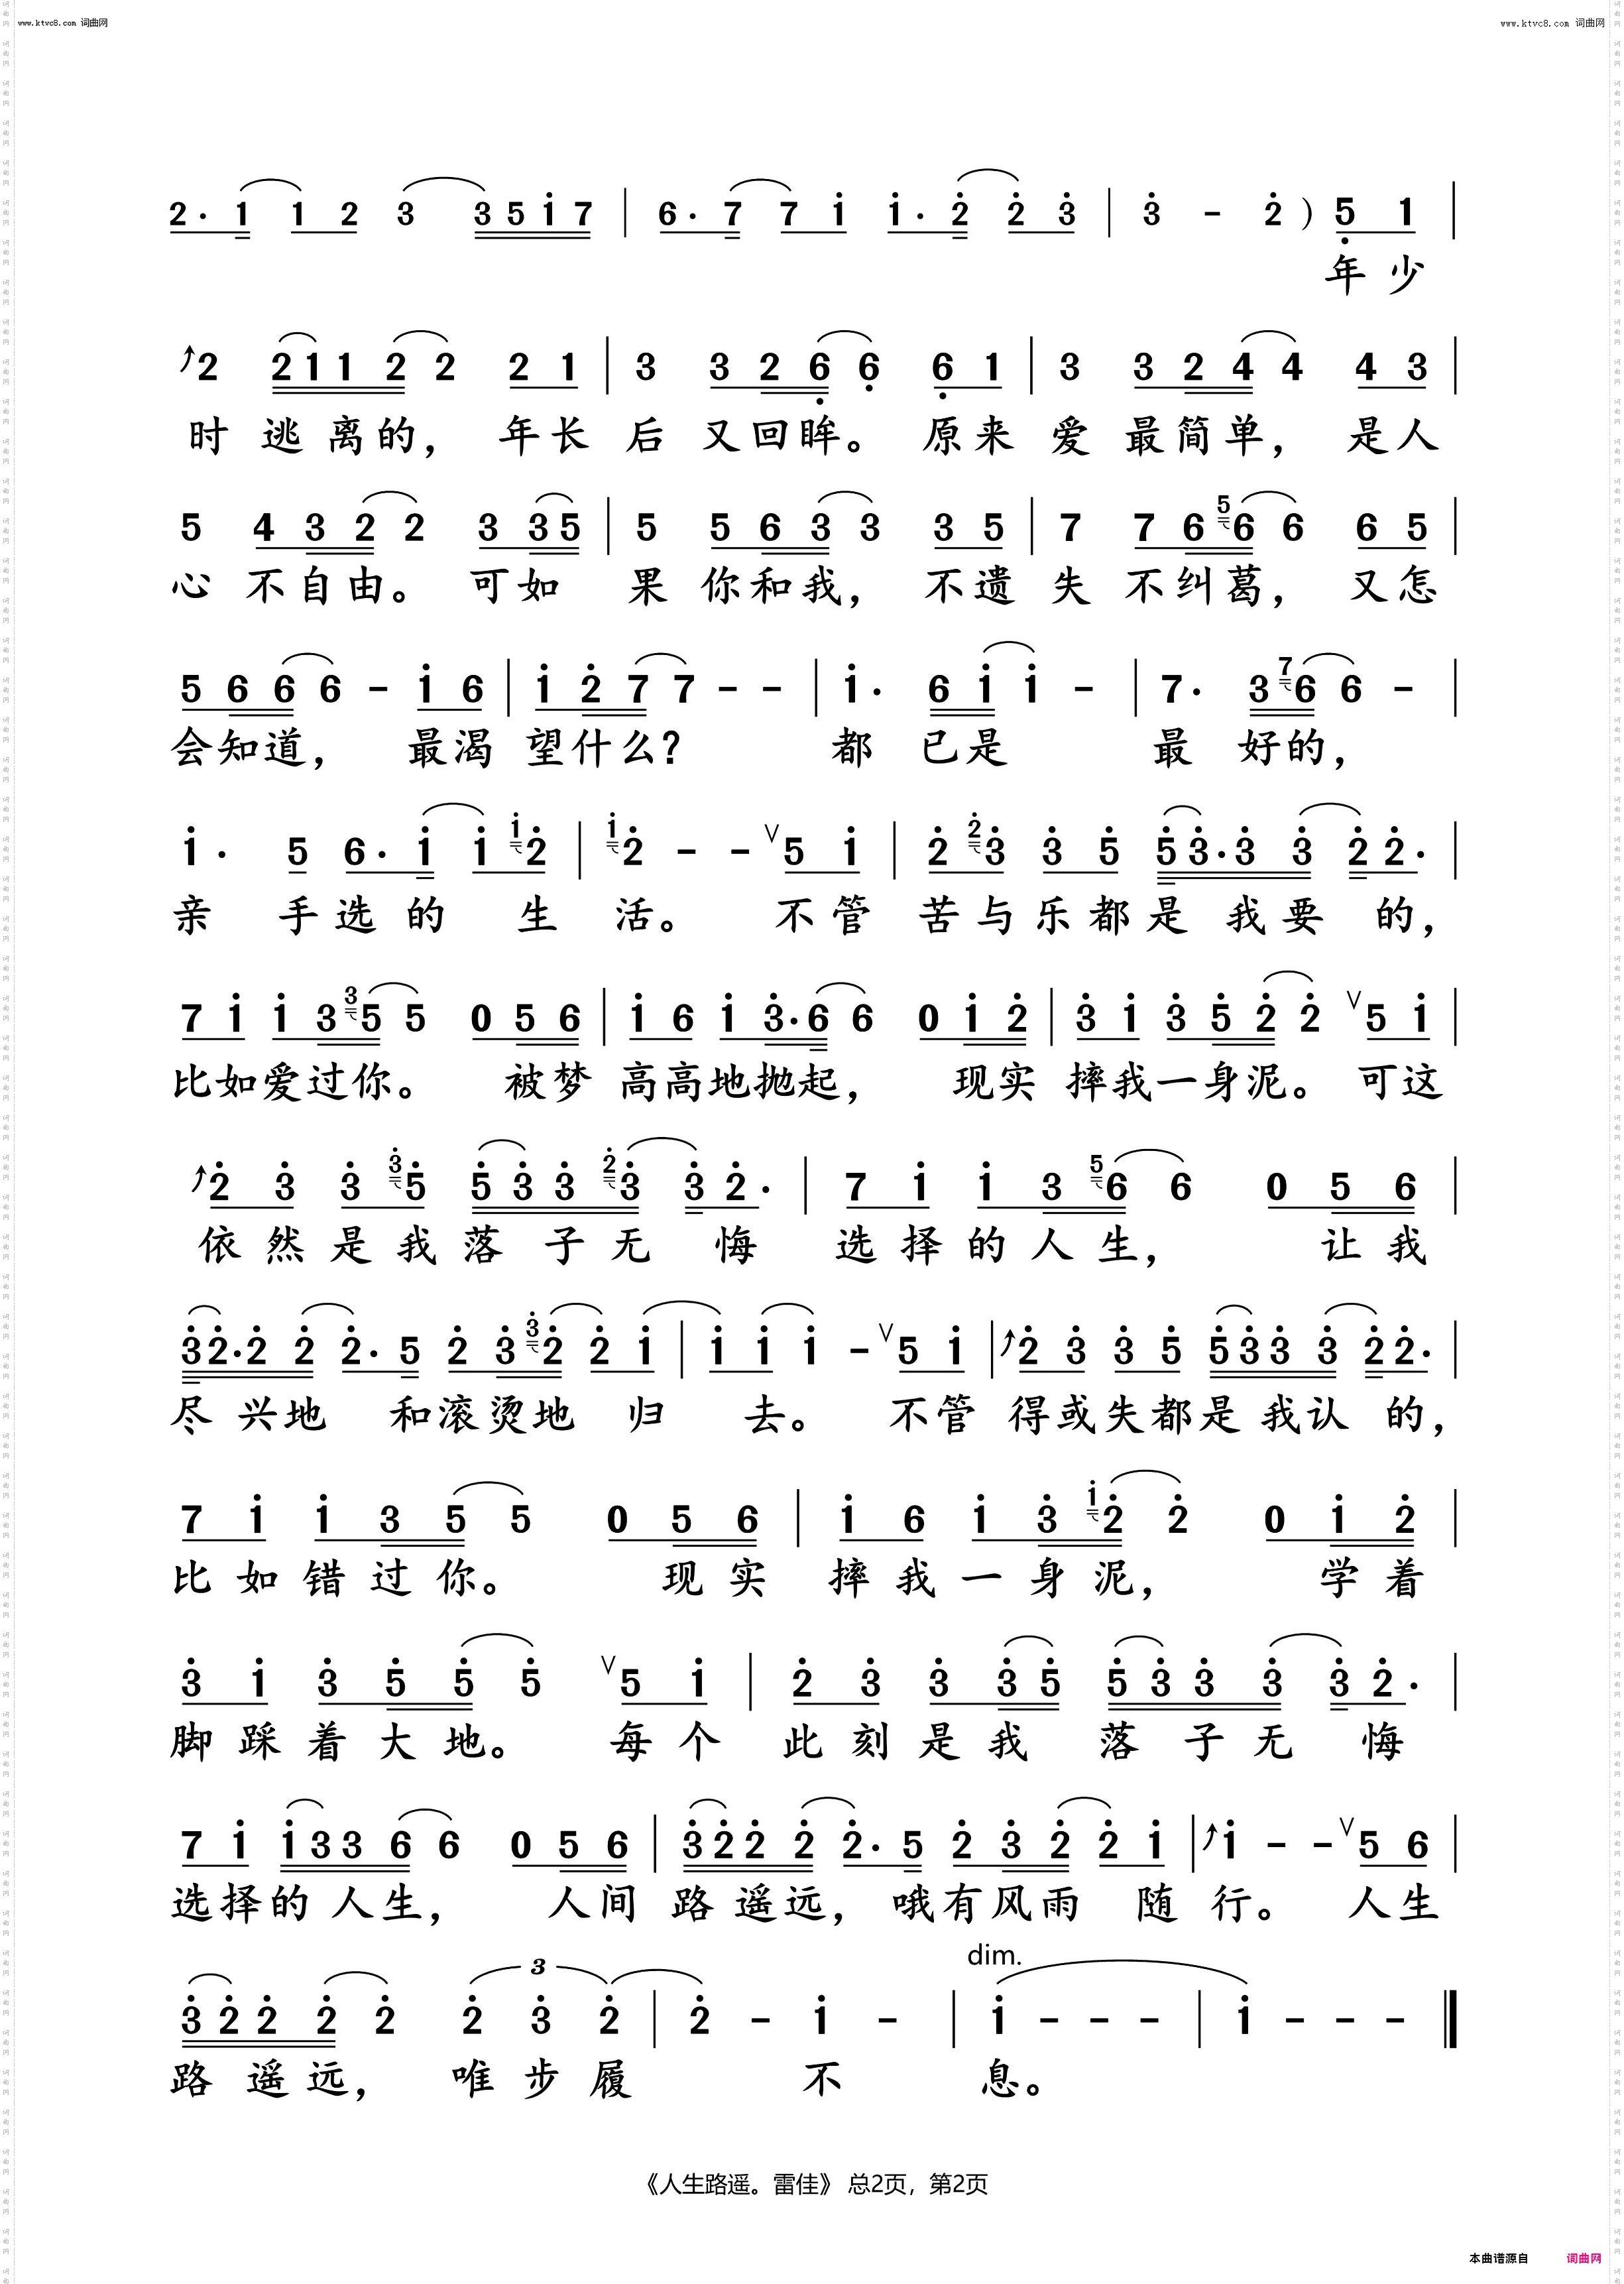 www.ktvc8.com 词曲网 www.ktvc8.com 词曲网
2· 1 1 2 3 3 5 1 7 | 6· 7 7 1 1· 2 2 3 | 3 - 2 ) 5 1 |
年少
2 2 1 1 2 2 2 1 | 3 3 2 6 6 6 1 | 3 3 2 4 4 4 3 |
时逃离的，年长后又回眸。原来爱最简单，是人
5 4 3 2 2 3 3 5 | 5 5 6 3 3 3 5 | 7 7 6 5 6 6 6 5 |
心不自由。可如果你和我，不遗失不纠葛，又怎
5 6 6 6 - 1 6 | 1 2 7 7 - - | 1· 6 1 1 - | 7· 3 7 6 6 - |
会知道，最渴望什么？都已是最好的，
1· 5 6· 1 1 1 2 | 1 2 - - V 5 1 | 2 2 3 3 5 5 3· 3 3 2 2· |
亲手选的生活。不管苦与乐都是我要的，
7 1 1 3 3 5 5 0 5 6 | 1 6 1 3· 6 6 0 1 2 | 3 1 3 5 2 2 V 5 1 |
比如爱过你。被梦高高地抛起，现实摔我一身泥。可这
2 3 3 3 5 5 3 3 2 3 3 2· | 7 1 1 3 5 6 6 0 5 6 |
依然是我落子无悔选择的人生，让我
3 2· 2 2 2· 5 2 3 3 2 2 1 | 1 1 1 - V 5 1 | 2 3 3 5 5 3 3 3 2 2· |
尽兴地和滚烫地归去。不管得或失都是我认的，
7 1 1 3 5 5 0 5 6 | 1 6 1 3 1 2 2 0 1 2 |
比如错过你。现实摔我一身泥，学着
3 1 3 5 5 5 V 5 1 | 2 3 3 3 5 5 3 3 3 3 2· |
脚踩着大地。每个此刻是我落子无悔
7 1 1 3 3 6 6 0 5 6 | 3 2 2 2 2· 5 2 3 2 2 1 | 1 - - V 5 6 |
选择的人生，人间路遥远，哦有风雨随行。人生
3 dim.
3 2 2 2 2 2 3 2 | 2 - 1 - | 1 - - - | 1 - - - ‖
路遥远，唯步履不息。
《人生路遥。雷佳》 总2页，第2页
本曲谱源自 词曲网